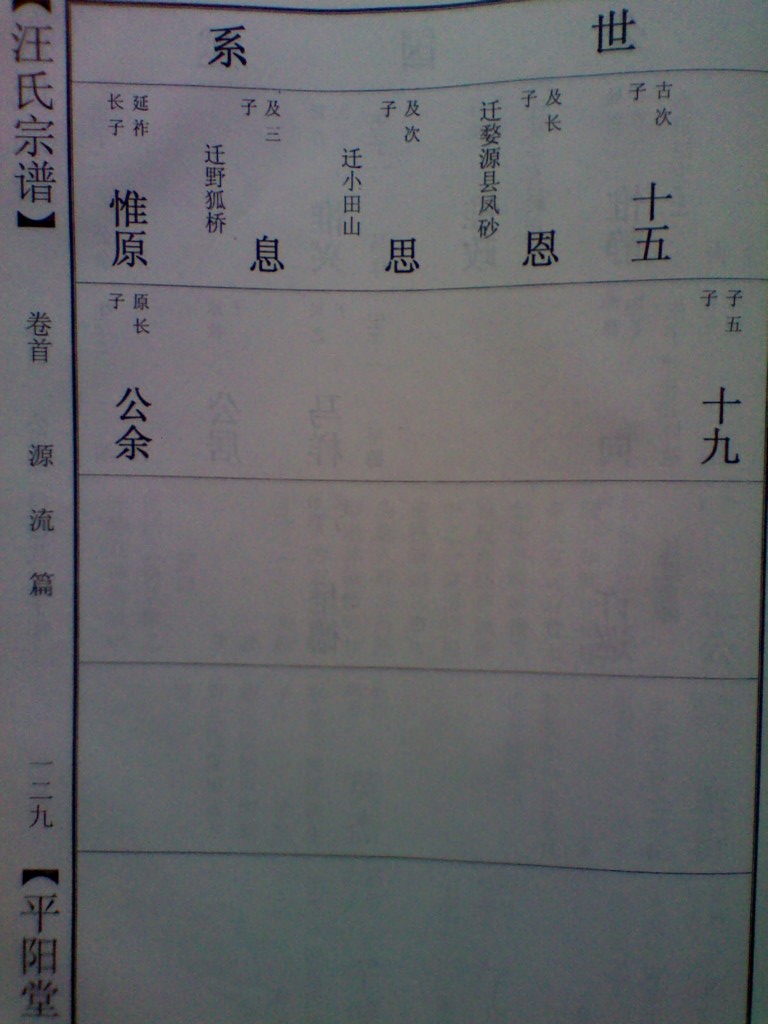 世系
古次子
十五
及长子
恩
迁婺源县凤砂
及次子
思
迁小田山
及三子
息
迁野狐桥
延祚长子
惟原
子五子
十九
原长子
公余
【汪氏宗谱】
卷首
源流篇
一二九
【平阳堂